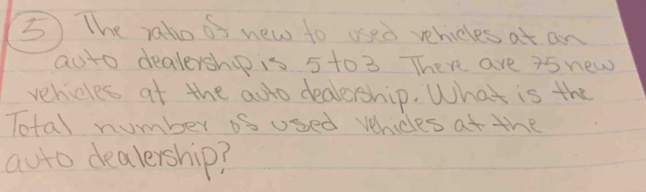 5) The ratio of new to used vehicles at an
auto dealership is 5 to 3 There are 75 new
vehicles at the auto dealership. What is the
Total number of used vehicles at the
auto dealership?